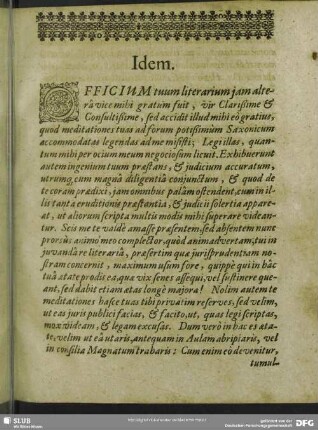 Idem.
OFFICIUM tuum literarium jam alte-
râ vice mihi gratum fuit, vir Clarißime &
Consultißime, sed accidit illud mihi eò gratius,
quod meditationes tuas ad forum potißimum Saxonicum
accommodatas legendas ad me misisti; Legi illas, quan-
tum mihi per ocium meum negociosum licuit. Exhibuerunt
autem ingenium tuum præstans, & judicium accuratum,
utrumq; cum magnâ diligentiâ conjunctum, & quod de
te coram prædixi, jam omnibus palàm ostendent, cum in il-
lis tanta eruditionis præstantia, & judicii solertia appare-
at, ut aliorum scripta multis modis mihi superare videan-
tur. Scis me te valdè amasse præsentem, sed absentem nunc
prorsus animo meo complector, quod animadvertam, tui in
juvanda re literariâ, præsertim quæ jurisprudentiam no-
stram concernit, maximum usum fore, quippè qui in hâc
tuâ ætate prodis ea, quæ vix senes assequi, vel sustinere que-
ant, sed dabit etiam ætas longè majora! Nolim autem te
meditationes hasce tuas tibi privatim reserves, sed velim,
ut eas juris publici facias, & facito, ut, quas legi scriptas,
mox videam, & legam excusas. Dum verò in hac es æta-
te, velim ut eâ utaris, antequam in Aulam abripiaris, vel
in consilia Magnatum traharis: Cum enim eò devenitur,
tumul-
SLUB